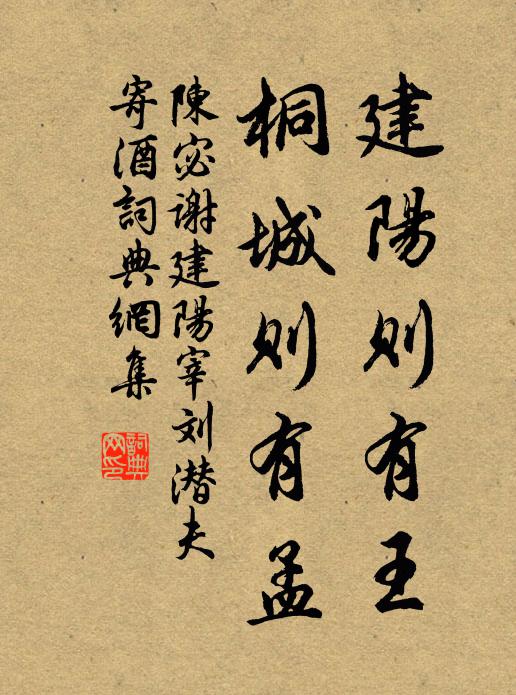 建陽則有王
桐城則有孟
陳宓谢建陽宰刘潜夫
寄酒詞典網集
詞典
网印